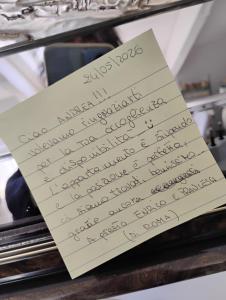 24/05/2026
CIAO ANDREA!!!
VOLEVAMO RINGRAZIARTI
PER LA TUA ACCOGLIENZA
E DISPONIBILITÀ
L'APPARTAMENTO È STUPENDO
E LA POSIZIONE È PERFETTA,
CI SIAMO TROVATI BENISSIMO
GRAZIE ANCORA
A PRESTO ENRICO E
(DA ROMA)